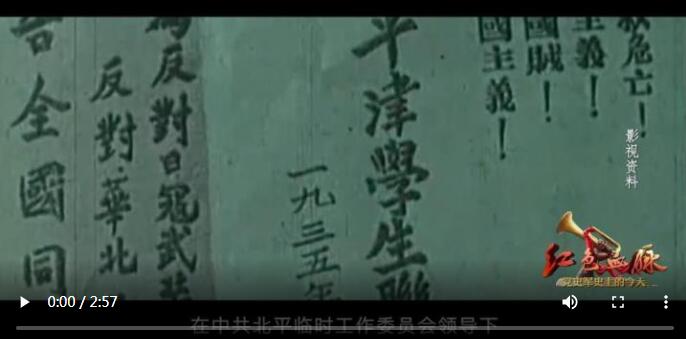 救危亡！
主義！
國賊！
國主義！
平津學生聯
一九三五年
為反對日寇武裝
反對華北
告全國同
影视资料
红色血脉
党史军史上的今天
0:00 / 2:57
在中共北平临时工作委员会领导下